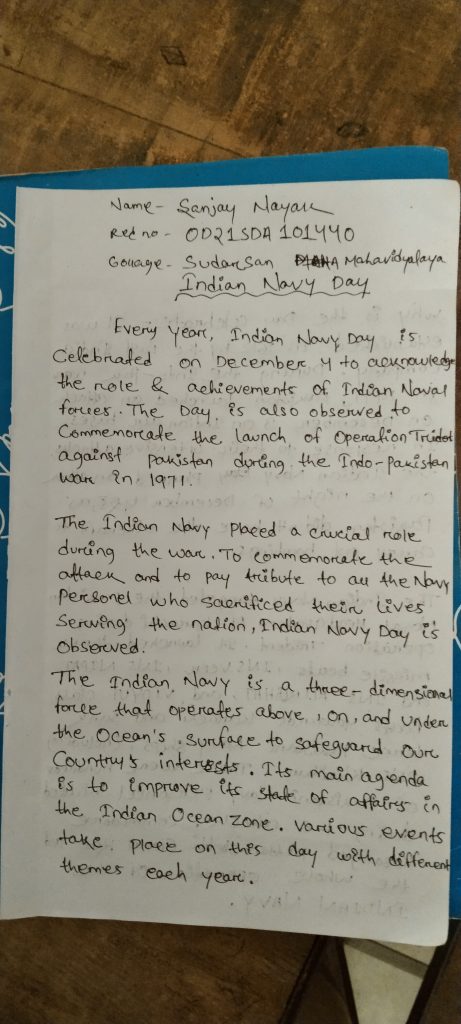 Name- Sanjay Nayak
Red no - OD21SDA101440
Gollage - Sudarsan Mahavidyalaya
Indian Navy Day
Every year, Indian Navy Day is
Celebrated on December 4 to acknowledge
the role & achievements of Indian Naval
forces. The Day is also observed to
Commemorate the launch of Operation Tridot
against pakistan during the Indo-pakistan
war in 1971.
The Indian Navy placed a crucial role
during the war. To commemorate the
attack and to pay tribute to all the Navy
Personel who sacrificed their lives
Serving the nation, Indian Navy Day is
Observed.
The Indian Navy is a three-dimensional
force that operates above, on, and under
the Ocean's surface to safeguard our
Country's interests. Its main agenda
is to improve its state of affairs in
the Indian Ocean Zone. various events
take place on this day with different
themes each year.